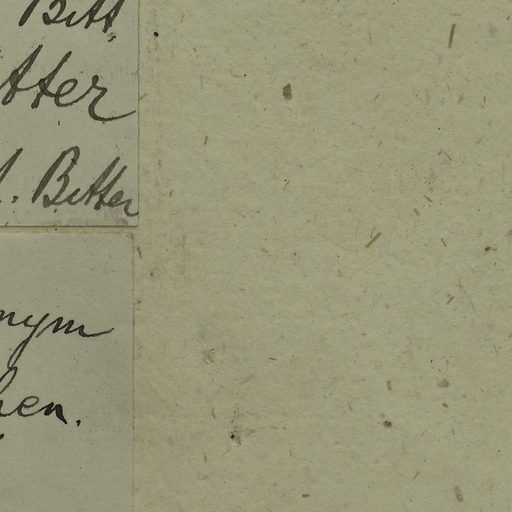 Bitt,
tter
. Bitter
nym
hen.